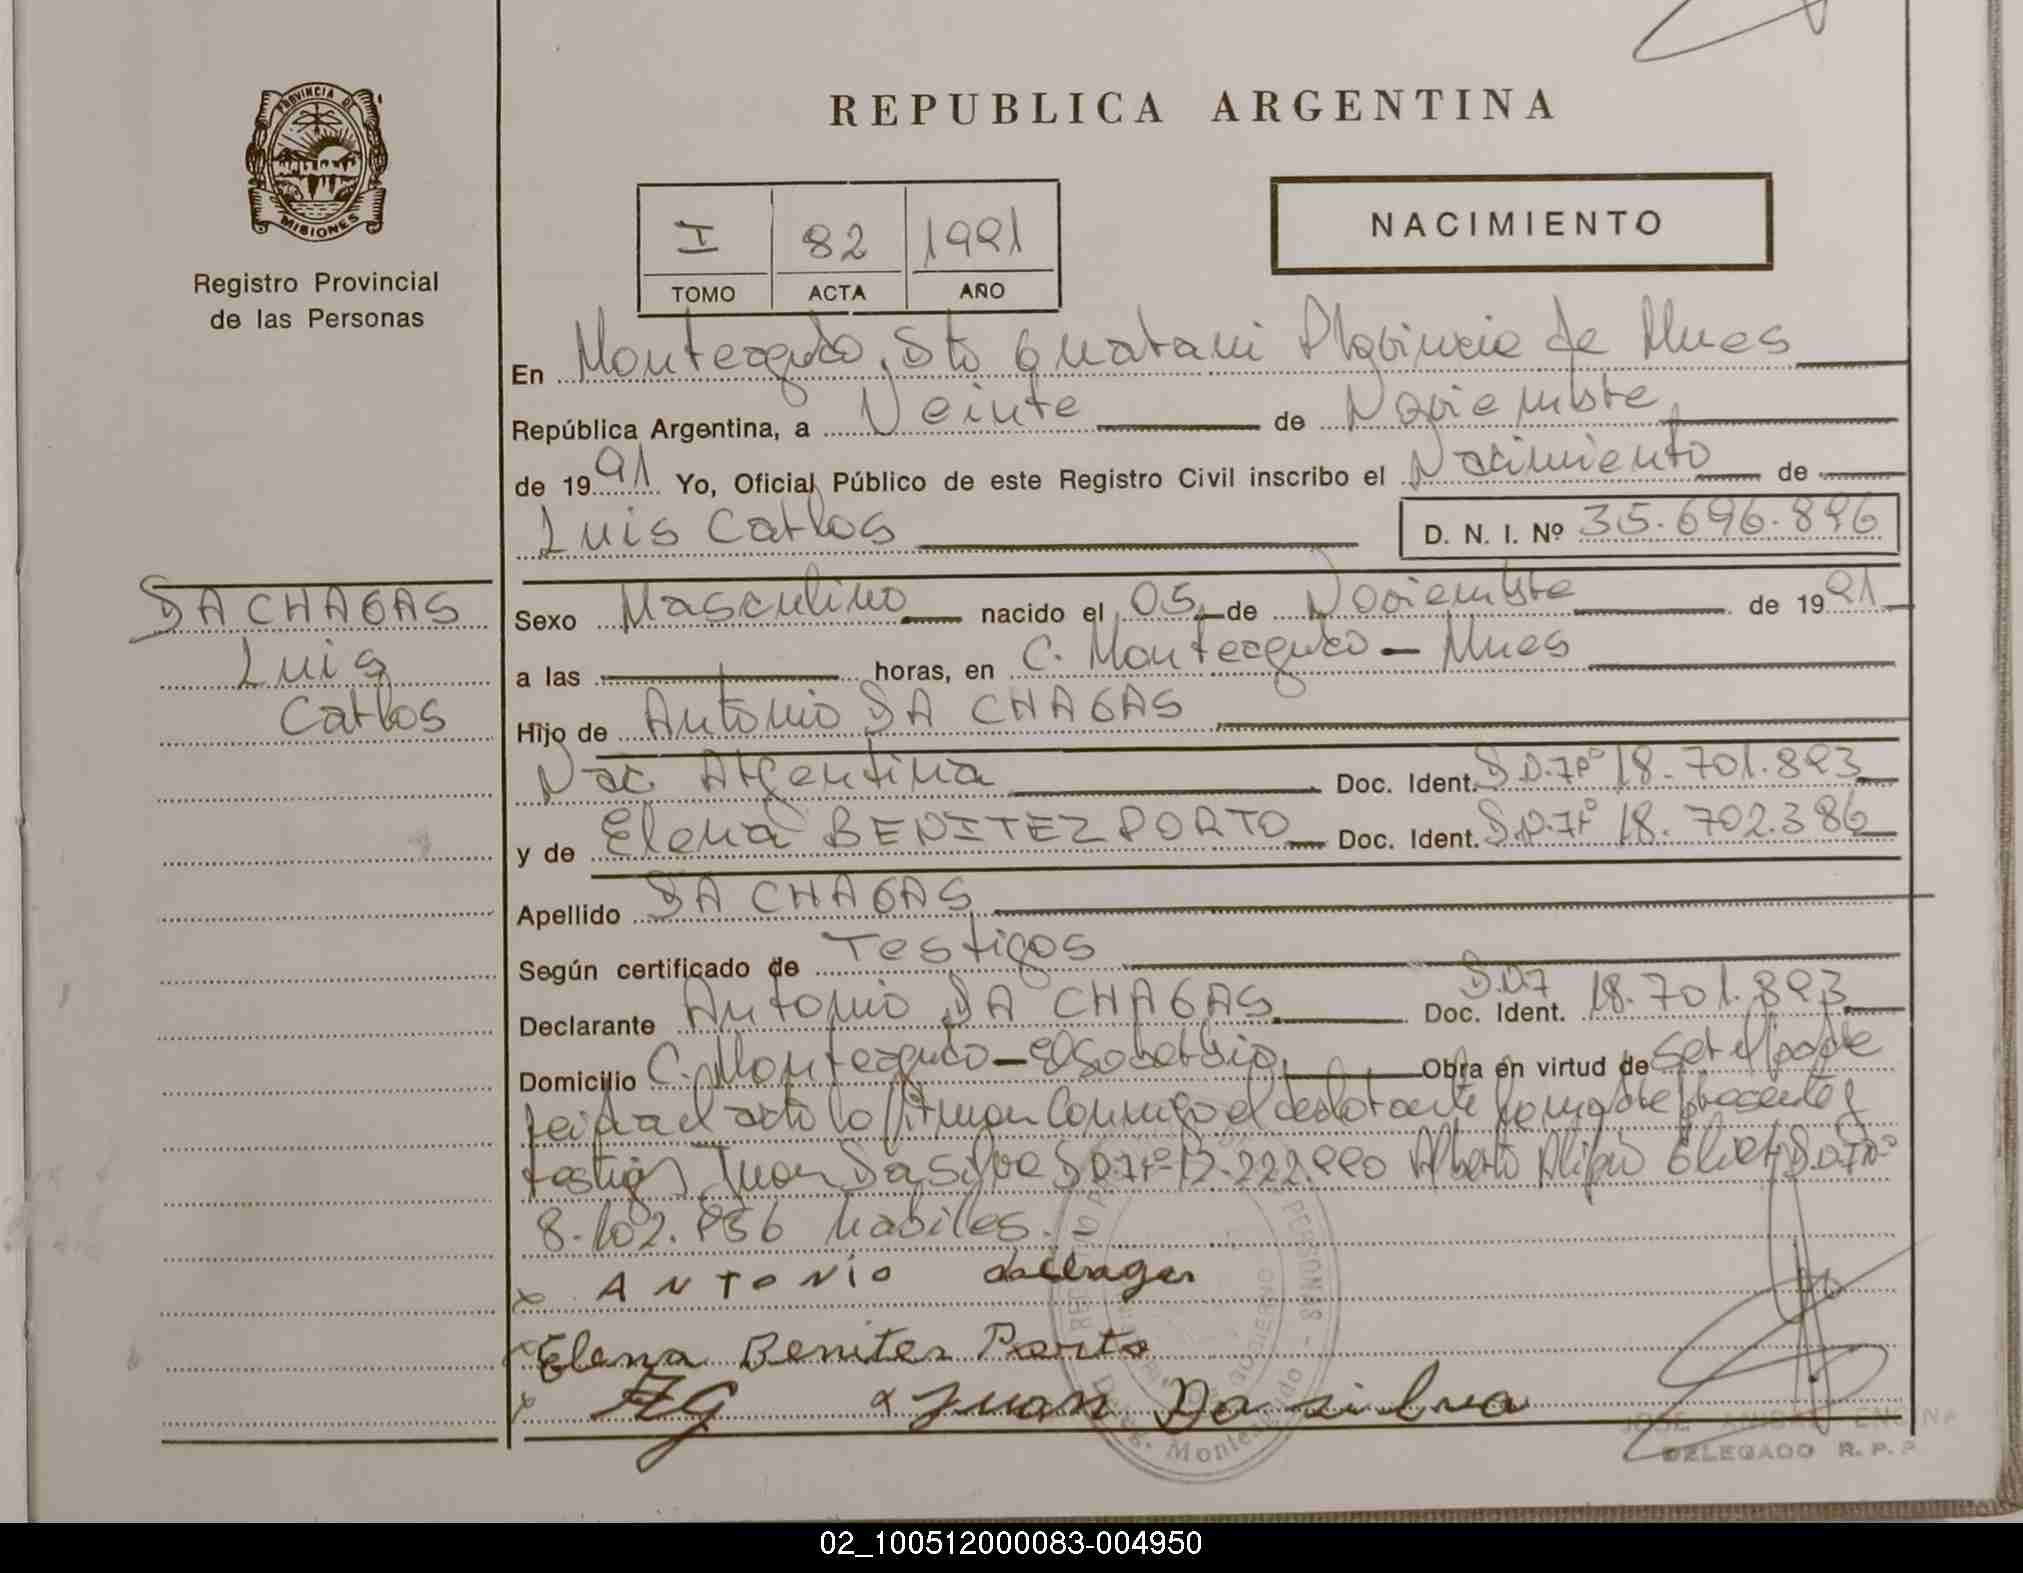 REPUBLICA ARGENTINA
PROVINCIA DE
MISIONES
Registro Provincial
de las Personas
I 82 1991
TOMO ACTA AÑO
NACIMIENTO
En Monteagudo, Dto Guarani Provincia de Mnes
República Argentina, a Veinte de Noviembre
de 1991 Yo, Oficial Público de este Registro Civil inscribo el Nacimiento de
Luis Carlos D. N. I. Nº 35.696.896
DA CHAGAS
Luis
Carlos
Sexo Masculino nacido el 05 de Noviembre de 1991
a las horas, en C. Monteagudo - Mnes
Hijo de Antonio DA CHAGAS
Nac. Argentina Doc. Ident. 18.701.893
y de Elena BENITEZ PORTO Doc. Ident. 18.702.386
Apellido DA CHAGAS
Según certificado de Testigos
Declarante Antonio DA CHAGAS Doc. Ident. 18.701.893
Domicilio C. Monteagudo - El Soberbio Obra en virtud de ser el padre
leida el acta lo firman conmigo el declarante la madre presente y
testigos Juan Da Silva Alberto Alipio
8.102.956 habiles.
x ANTONIO dachagas
x Elena Benites Porto
x AG x Juan Da silva
PERSONAS
GOBIERNO
DELEGADO R. P. P
02_100512000083-004950